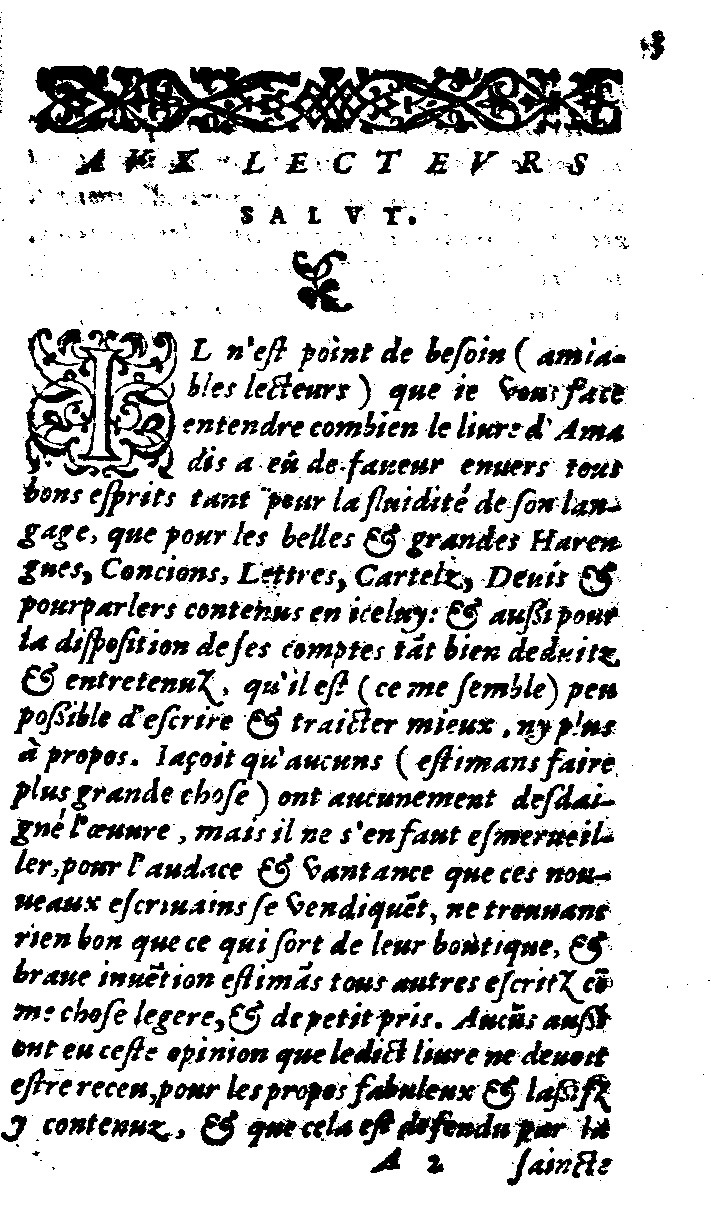 3
AUX LECTEVRS
SALVT.
IL n'eſt point de beſoin ( amia-
bles lecteurs ) que ie vous face
entendre combien le liure d'Ama
dis a eû de faueur enuers tout
bons eſprits tant pour la fluidité de ſon lan-
gage, que pour les belles & grandes Haren
gues, Concions, Lettres, Cartelz, Deuis &
pourparlers contenus en iceluy: & auſſi pour
la diſpoſition de ſes comptes tāt bien deduitz
& entretenuz, qu'il eſt (ce me ſemble) peu
poſſible d'eſcrire & traicter mieux, ny plus
à propos. Iaçoit qu'aucuns ( eſtimans faire
plus grande choſe ) ont aucunement deſdai-
gné l'œuure, mais il ne s'en faut eſmerueil-
ler, pour l'audace & vantance que ces nou-
ueaux eſcriuains ſe vendiquēt, ne trouuant
rien bon que ce qui ſort de leur boutique, &
braue inuētion eſtimās tous autres eſcritz cō
me choſe legere, & de petit pris. Aucūs auſſi
ont eu ceſte opinion que ledict liure ne deuoit
eſtre receu, pour les propos fabuleux & laſſifz
y contenuz, & que cela eſt defendu par la
A 2 ſaincte